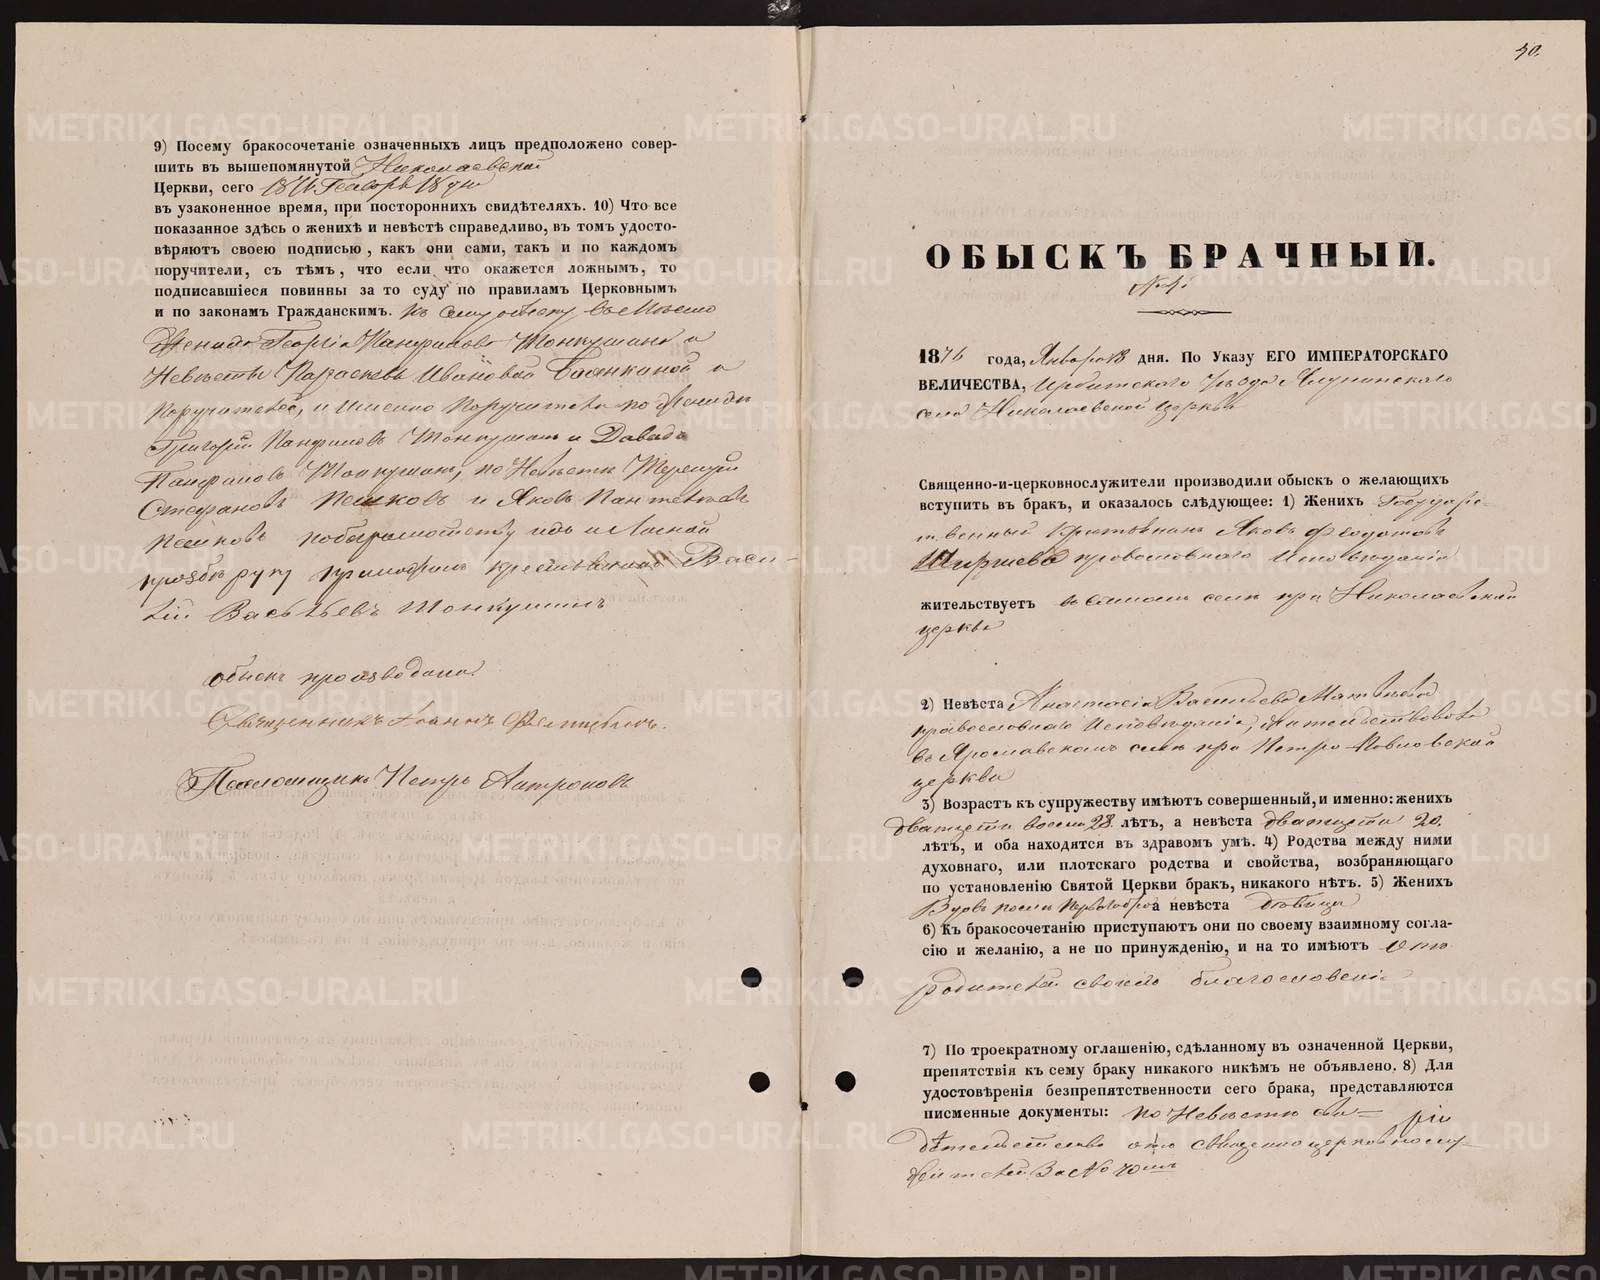 9) Посему бракосочетаніе означенныхъ лицъ предположено совер-
шить въ вышепомянутой Николаевской
Церкви, сего 1876 18 дня
въ узаконенное время, при постороннихъ свидѣтеляхъ. 10) Что все
показанное здѣсь о женихѣ и невѣстѣ справедливо, въ томъ удосто-
вѣряютъ своею подписью, какъ они сами, такъ и по каждомъ
поручители, съ тѣмъ, что если что окажется ложнымъ, то
подписавшіеся повинны за то суду по правиламъ Церковнымъ
и по законамъ Гражданскимъ. Къ сему обыску вместо
Жениха Георгія Панфилова Тонкушина и
Невѣсты Параскевы Ивановой и
Поручителей, и именно Поручители по Женихѣ
Григорій Панфиловъ Тонкушинъ и Давидъ
Панфиловъ Тонкушинъ, по Невѣсте Терентій
Стефановъ Пешковъ и Яковъ
Пешковъ личной
прозбѣ руку приложилъ крестьянинъ Васи-
лій Васильевъ Тонкушинъ
обыск производили
Священникъ Іоаннъ
Псаломщикъ Петръ Антроповъ
40.
ОБЫСКЪ БРАЧНЫЙ.
1876 года, Января 18 дня. По Указу ЕГО ИМПЕРАТОРСКАГО
ВЕЛИЧЕСТВА, Ирбитского Уѣзда
села Николаевской церкви
Священно-и-церковнослужители производили обыскъ о желающихъ
вступить въ бракъ, и оказалось слѣдующее: 1) Женихъ Государс-
твенный Крестьянинъ Яковъ Феодотовъ
православного Исповѣданія
жительствуетъ въ селѣ при Николаевской
церкви
2) Невѣста Анастасія Васильева
православного Исповѣданія, жительствовала
въ Ярославскомъ селѣ при Петро-Павловской
церкви
3) Возрастъ къ супружеству имѣютъ совершенный, и именно: женихъ
дватцети восми 28. лѣтъ, а невѣста дватцети 20.
лѣтъ, и оба находятся въ здравомъ умѣ. 4) Родства между ними
духовнаго, или плотскаго родства и свойства, возбраняющаго
по установленію Святой Церкви бракъ, никакого нѣтъ. 5) Женихъ
Вдовъ после Перваго брака невѣста дѣвица
6) Къ бракосочетанію приступаютъ они по своему взаимному согла-
сію и желанію, а не по принужденію, и на то имѣютъ отъ
родителей своихъ благословеніе
7) По троекратному оглашенію, сдѣланному въ означенной Церкви,
препятствія къ сему браку никакого никѣмъ не объявлено. 8) Для
удостовѣренія безпрепятственности сего брака, представляются
писменные документы: по Невѣсте сви-
дѣтельство отъ священноцерковнослу-
жителей За № 40
METRIKI.GASO-URAL.RU